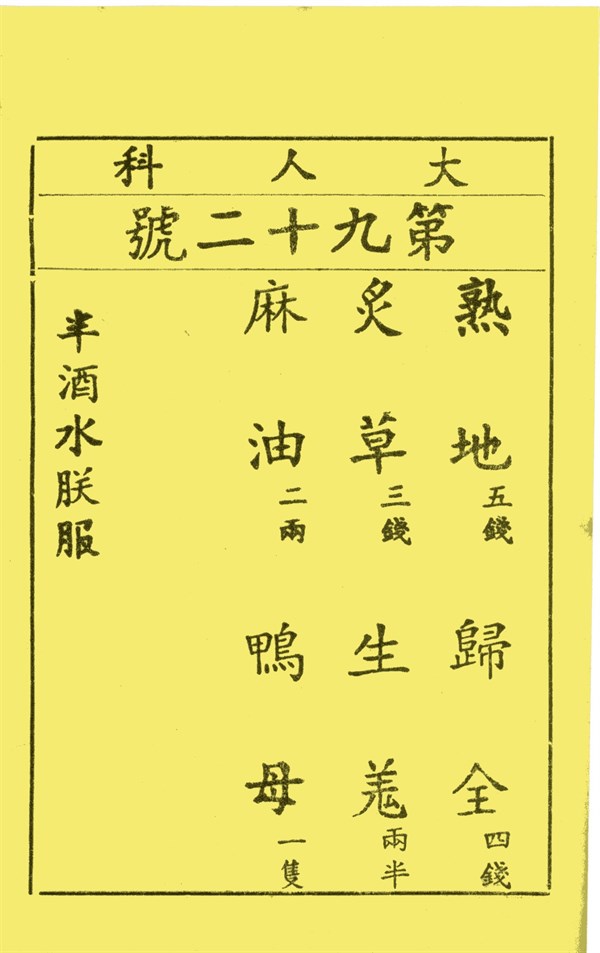 大人科
第九十二號
熟地五錢 歸全四錢
炙草三錢 生羗兩半
麻油二兩 鴨母一隻
半酒水朕服